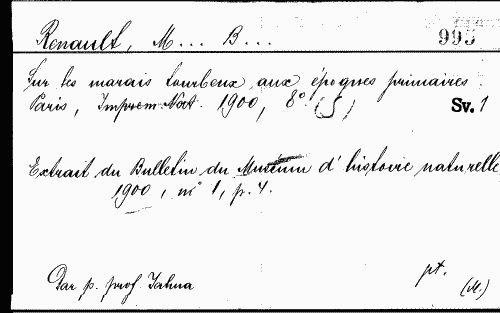 Renault, M... B... 995
Sur les marais tourbeux aux époques primaires.
Paris, Imprem. Nat. 1900, 8° (S) Sv. 1
Extrait du Bulletin du Muséum d'histoire naturelle
1900, n° 1, p. 4.
pt.
Dar p. prof. Jahna (M.)